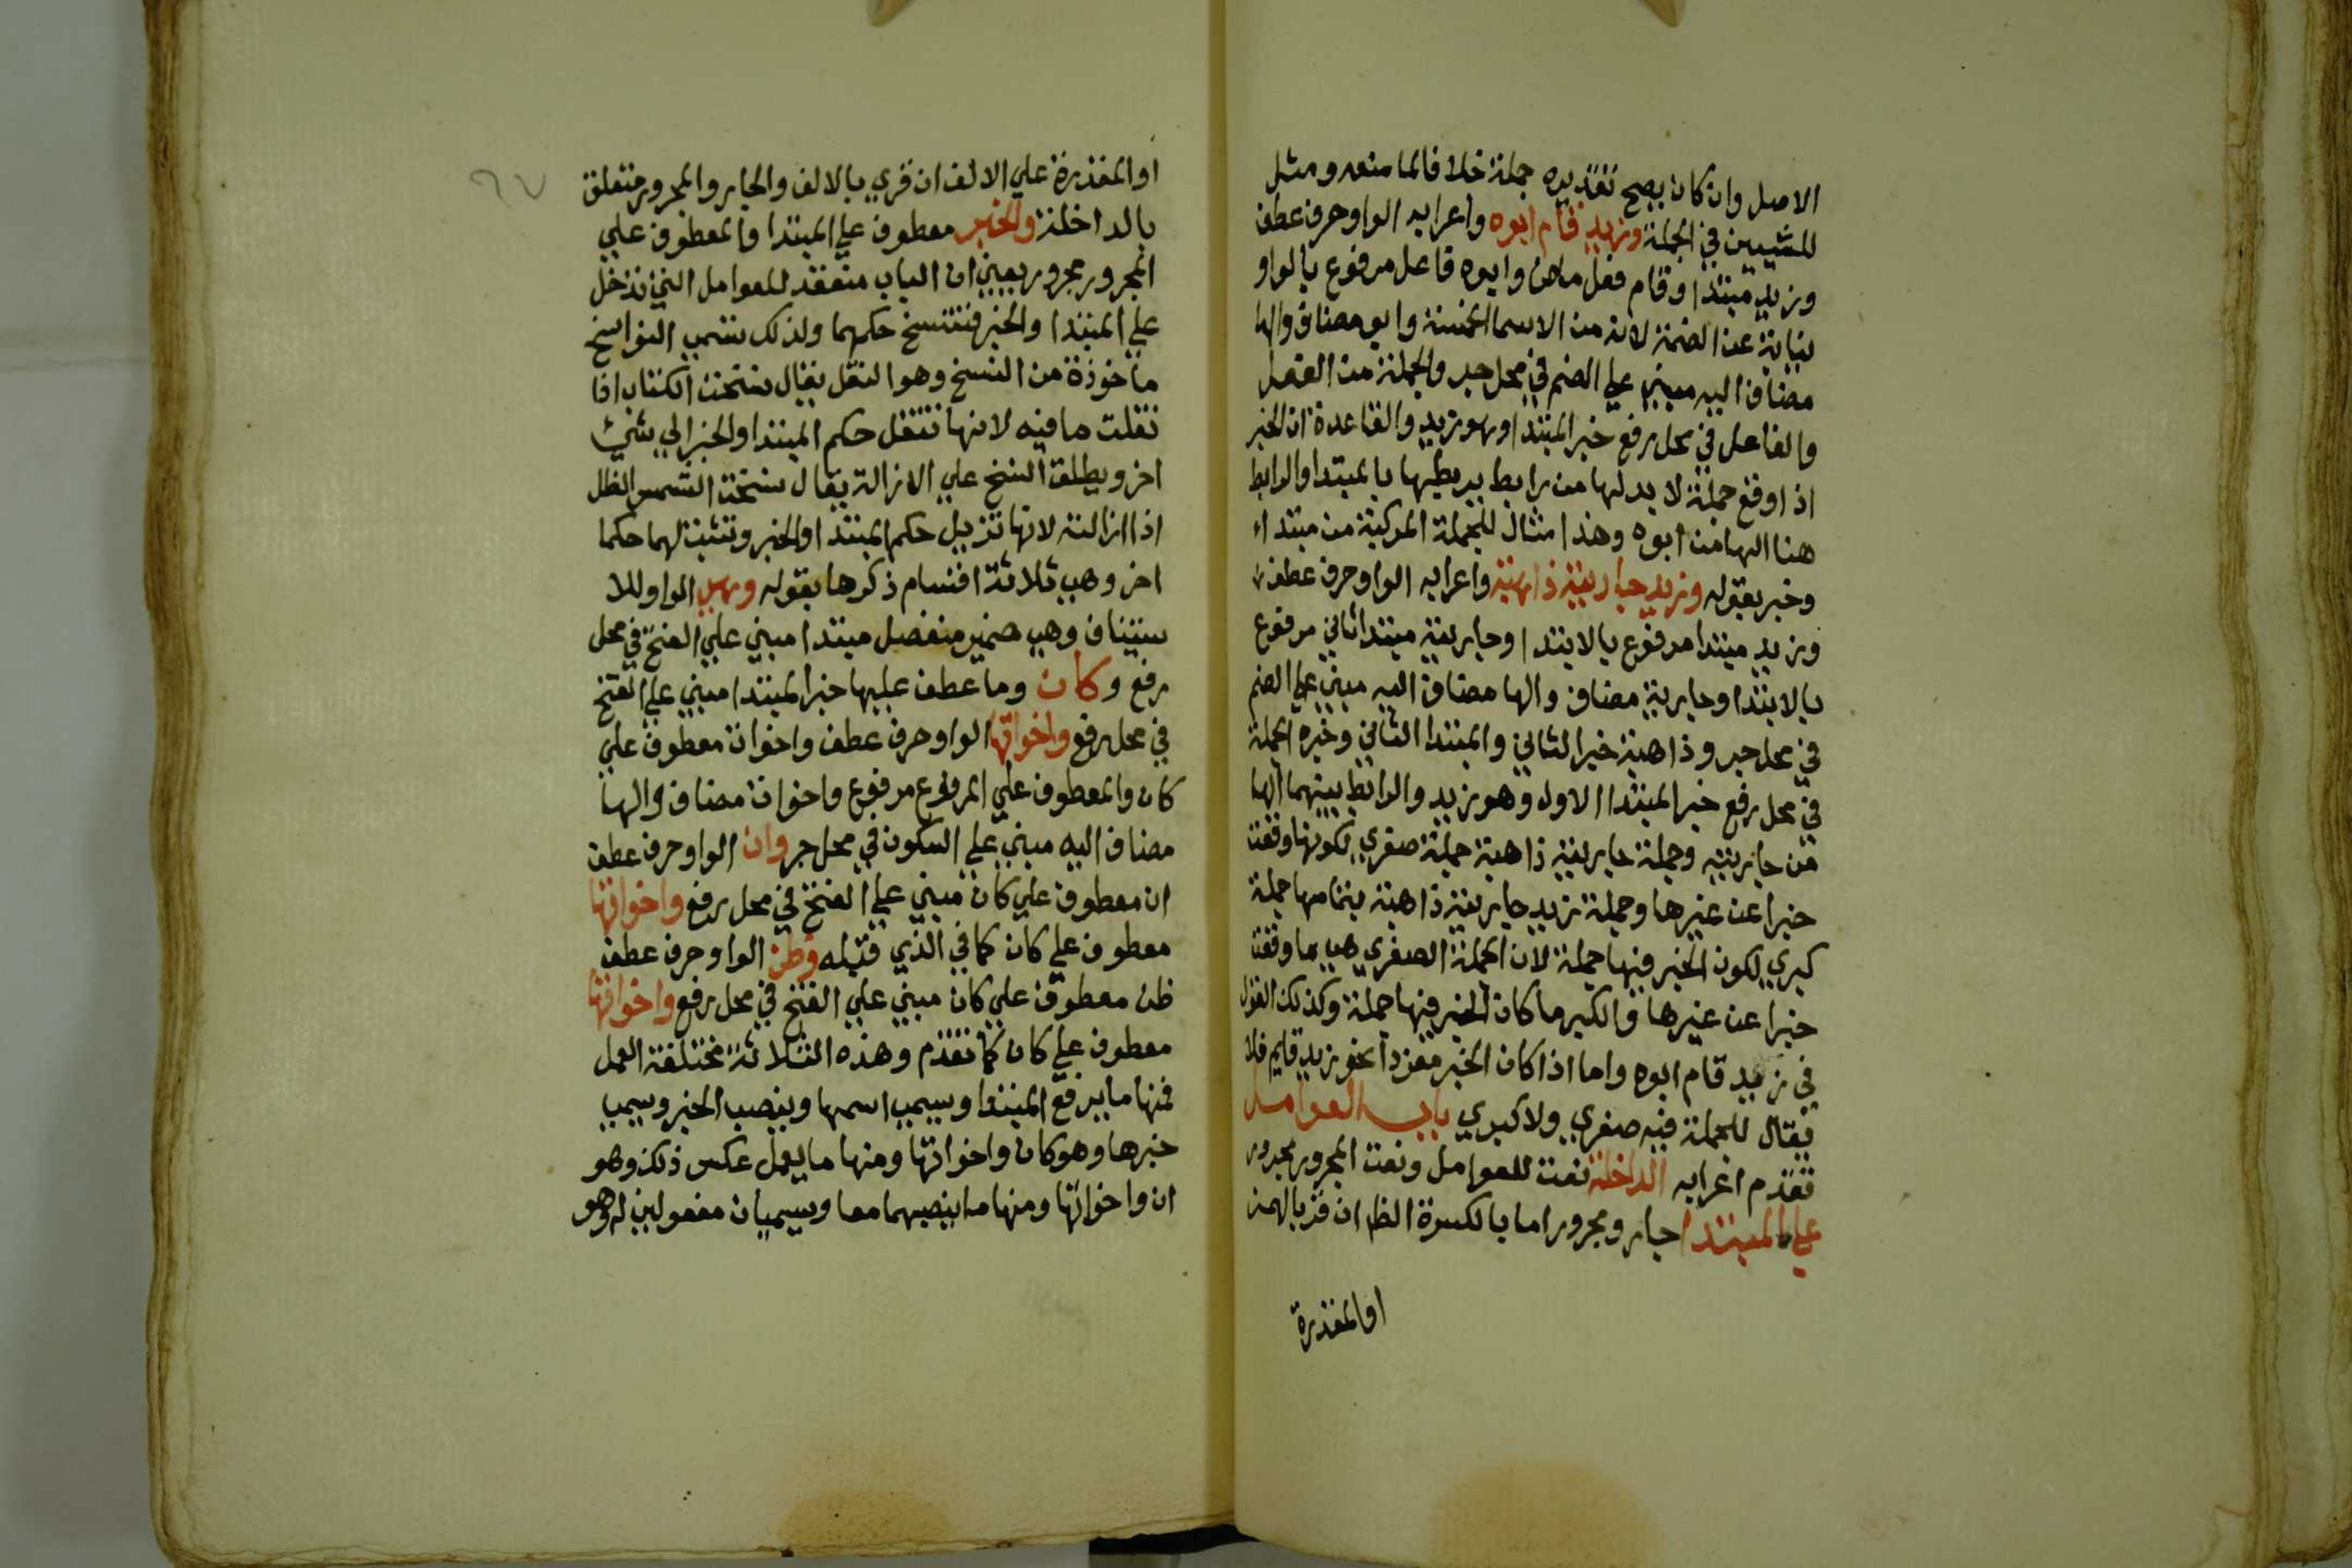 الاصل وان كان يصح تقديره جملة خلافا لما منعه ومثل
للشيين في الجملة وزيد قام ابوه واعرابه الواو حرف عطف
وزيد مبتدا وقام فعل ماض وابوه فاعل مرفوع بالواو
نيابة عن الضمة لانه من الاسما الخمسة وابو مضاف والها
مضاف اليه مبني علي الضم في محل جر والجملة من الفعل
والفاعل في محل رفع خبر المبتدا وهو زيد والقاعدة ان الخبر
اذا وقع جملة لا بد لها من رابط يربطها بالمبتدا والرابط
هنا الها من ابوه وهذا مثال للجملة المركبة من مبتداء
وخبر بقوله وزيد جاريته ذاهبة واعرابه الواو حرف عطف
وزيد مبتدا مرفوع بالابتدا وجاريته مبتدا ثاني مرفوع
بالابتدا وجارية مضاف والها مضاف اليه مبني علي الضم
في محل جر وذاهبة خبر الثاني والمبتدا الثاني وخبره الجملة
في محل رفع خبر المبتدا الاول وهو زيد والرابط بينهما الها
من جاريته وجملة جاريته ذاهبة جملة صغري لكونها وقعت
خبرا عن غيرها وجملة زيد جاريته ذاهبة بتمامها جملة
كبري لكون الخبر فيها جملة لان الجملة الصغري هي ما وقعت
خبرا عن غيرها والكبر ما كان الخبر فيها جملة وكذلك القول
في زيد قام ابوه واما اذا كان الخبر مفردا نحو زيد قايم فلا
يقال للجملة فيه صغري ولا كبري باب العوامل
تقدم اعرابه الداخلة نعت للعوامل ونعت المجرور مجرور
علي المبتدا جار ومجرور اما بالكسرة الظا ان قر بالهمز
او المقدرة
٦٧
او المقدرة علي الالف ان قري بالالف والجار والمجرور متعلق
بالداخلة والخبر معطوف علي المبتدا والمعطوف علي
المجرور مجرور يعيني ان الباب منعقد للعوامل التي تدخل
علي المبتدا والخبر فتنسخ حكمهما ولذلك تسمي النواسخ
ماخوذة من النسخ وهو النقل يقال نسخت الكتاب اذا
نقلت ما فيه لانها تنقل حكم المبتدا والخبر الي شيئ
اخر ويطلق النسخ علي الازالة يقال نسخت الشمس الظل
اذا ازالته لانها تزيل حكم المبتدا والخبر وتثبت لهما حكما
اخر وهي ثلاثة اقسام ذكرها بقوله وهي الواو للا
ستيناف وهي ضمير منفصل مبتدا مبني علي الفتح في محل
رفع وكان وما عطف عليها خبر المبتدا مبني علي الفتح
في محل رفع واخواتها الواو حرف عطف واخوات معطوف علي
كان والمعطوف علي المرفوع مرفوع واخوات مضاف والها
مضاف اليه مبني علي السكون في محل جر وان الواو حرف عطف
ان معطوف علي كان مبني علي الفتح في محل رفع واخواتها
معطوف علي كان كما في الذي قبله وظن الواو حرف عطف
ظن معطوف علي كان مبني علي الفتح في محل رفع واخواتها
معطوف علي كان كما تقدم وهذه الثلاثة مختلفة العمل
فمنها ما يرفع المبتدا ويسمي اسمها وينصب الخبر ويسمي
خبرها وهو كان واخواتها ومنها ما يعمل عكس ذلك وهو
ان واخواتها ومنها ما ينصبهما معا ويسميان مفعولين له وهو